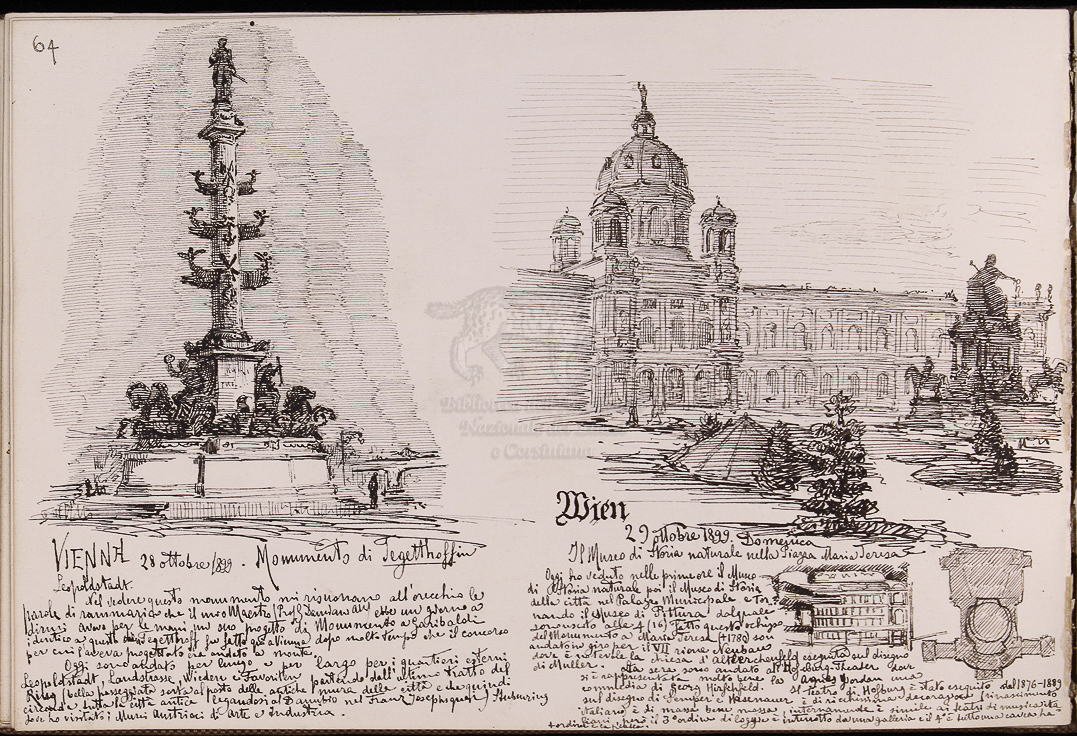 64
VIENNA 28 ottobre 1899. Monumento di Tegetthoff in
Leopoldstadt.
Nel vedere questo monumento mi risuonano all'orecchio le
parole di rammarico che il mio Maestro Prof. ebbe un giorno a
dirmi avea per le mani un suo progetto di Monumento a Garibaldi
identico a questo del Tegetthoff fu fatto qui a Vienna dopo molto tempo che il concorso
per cui l'aveva progettato era andato a monte.
Oggi sono andato per lungo e per largo per i quartieri esterni
Leopoldstadt, Landstrasse, Wiedere e Favoriten partendo dall'estremo tratto del
Ring (bella passeggiata sorta al posto delle antiche mura della città e che quindi
circonda tutta la città antica legandosi al Danubio nel Franz Josephsquai)
dove ho visitato i Musei Austriaci di Arte e Industria.
Wien
29 ottobre 1899. Domenica
Il Museo di Storia naturale nella Piazza Maria Teresa
Oggi ho veduto nelle prime ore il Museo
di Storia naturale poi il Museo di Storia
della città nel Palazzo Municipale e tor-
nando il Museo di Pittura dal quale
sono uscito alle 4 (16). Fatto questo schizzo
del Monumento a Maria Teresa (+1780) son
andato in giro per il VII rione Neubau
dove è notevole la chiesa d'Altlerchenfeld eseguita sul disegno
di Muller. Sta sera sono andato al Hofburg-Theater dove
si è rappresentata molto bene la Agnes Jordan una
commedia di Georg Hirschfeld. Il teatro di Hofburg è stato eseguito dal 1876-1889
sul disegno di Semper e Hasenauer è di ricchissima decorazione (rinascimento
italiano) è di massa bene mossa, internamente è simile ai teatri di musica ita-
liani, però il 3° ordine di logge è interrotto da una galleria e il 4° è tutto una
Biblioteca
Nazionale
e Corsiniana